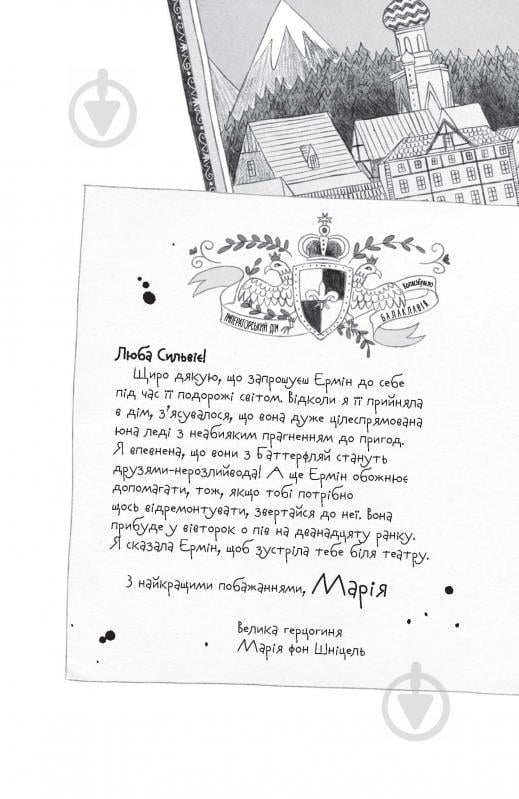 ІМПЕРАТОРСЬКИЙ ДІМ
БАЛАКЛАВІЯ
Люба Сильвіє!
Щиро дякую, що запрошуєш Ермін до себе
під час її подорожі світом. Відколи я її прийняла
в дім, з'ясувалося, що вона дуже цілеспрямована
юна леді з неабияким прагненням до пригод.
Я впевнена, що вони з Баттерфляй стануть
друзями-нерозлийвода! А ще Ермін обожнює
допомагати, тож, якщо тобі потрібно
щось відремонтувати, звертайся до неї. Вона
прибуде у вівторок о пів на дванадцяту ранку.
Я сказала Ермін, щоб зустріла тебе біля театру.
З найкращими побажаннями, Марія
Велика герцогиня
Марія фон Шніцель